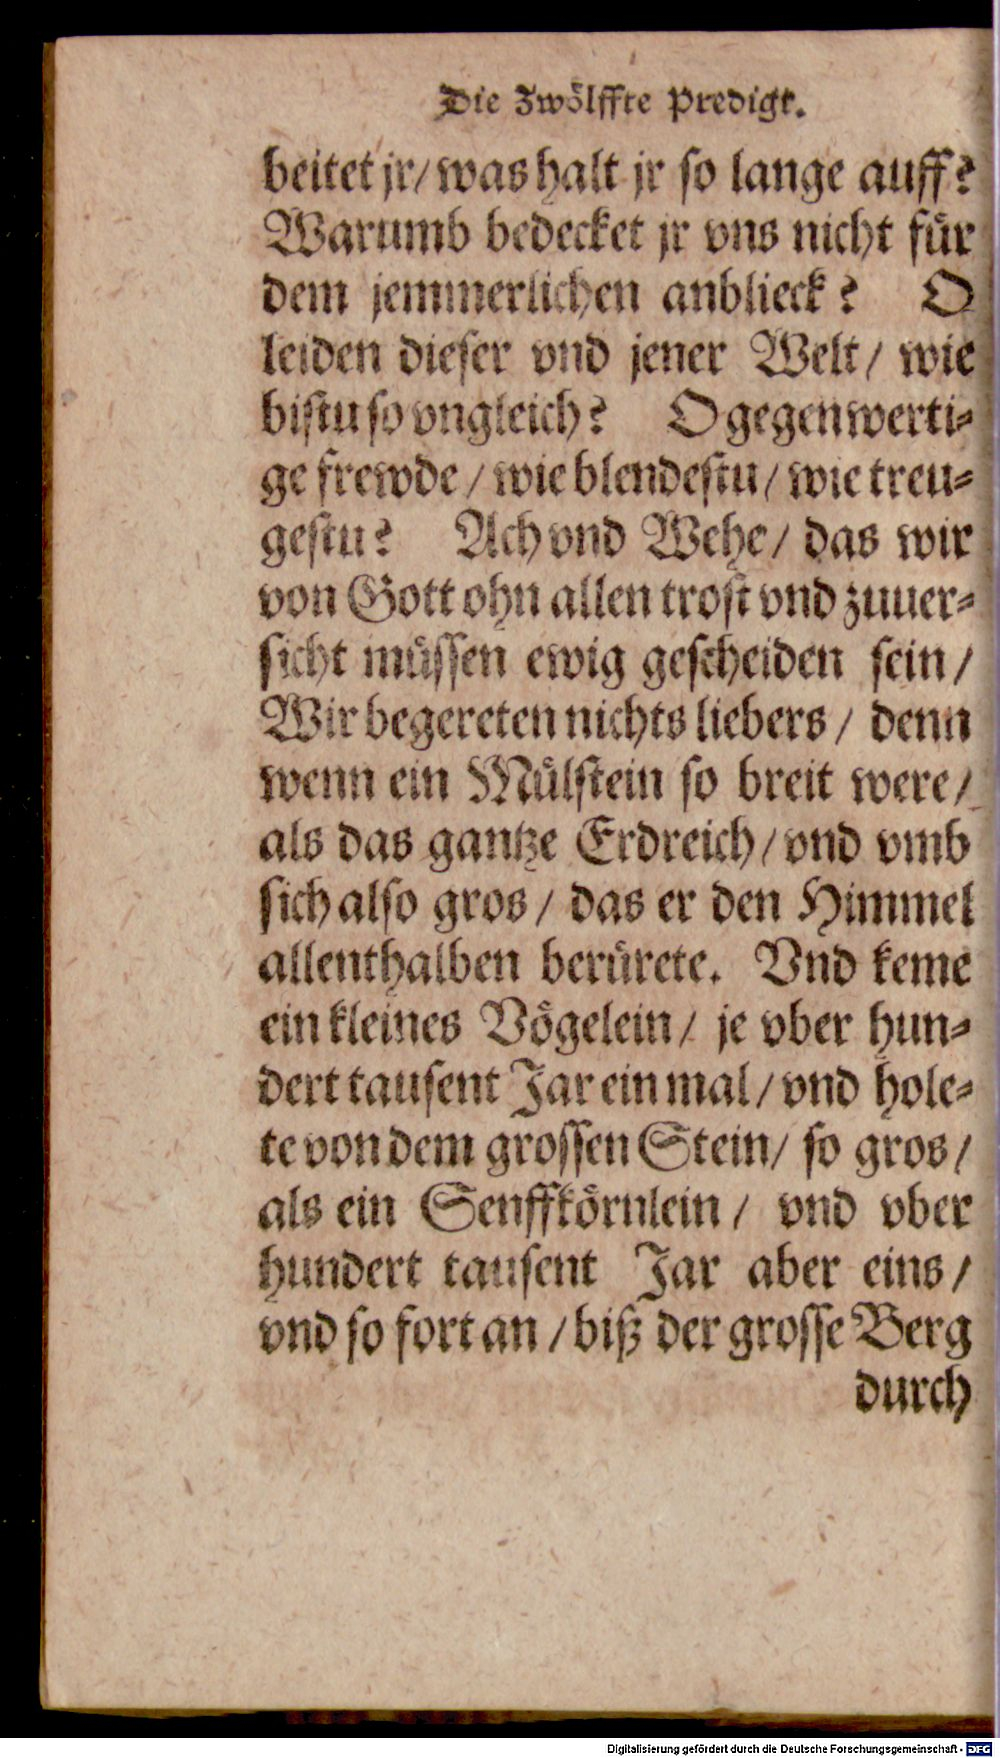 Die Zwölffte Predigt.
beitet jr/ was halt jr so lange auff?
Warumb bedecket jr vns nicht für
dem jemmerlichen anblieck? O
leiden dieser vnd jener Welt/ wie
bistu so vngleich? O gegenwerti-
ge frewde/ wie blendestu/ wie treu-
gestu? Ach vnd Wehe/ das wir
von Gott ohn allen trost vnd zuuer-
sicht müssen ewig gescheiden sein/
Wir begereten nichts liebers/ denn
wenn ein Mülstein so breit were/
als das gantze Erdreich/ vnd vmb
sich also gros/ das er den Himmel
allenthalben berürete. Vnd keme
ein kleines Vögelein/ je vber hun-
dert tausent Jar ein mal/ vnd hole-
te von dem grossen Stein/ so gros/
als ein Senffkörnlein/ vnd vber
hundert tausent Jar aber eins/
vnd so fort an/ biß der grosse Berg
durch
Digitalisierung gefördert durch die Deutsche Forschungsgemeinschaft - DFG